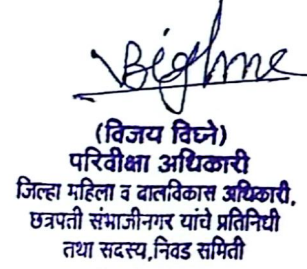 Bighne
(विजय विघ्ने)
परिवीक्षा अधिकारी
जिल्हा महिला व बालविकास अधिकारी,
छत्रपती संभाजीनगर यांचे प्रतिनिधी
तथा सदस्य,निवड समिती